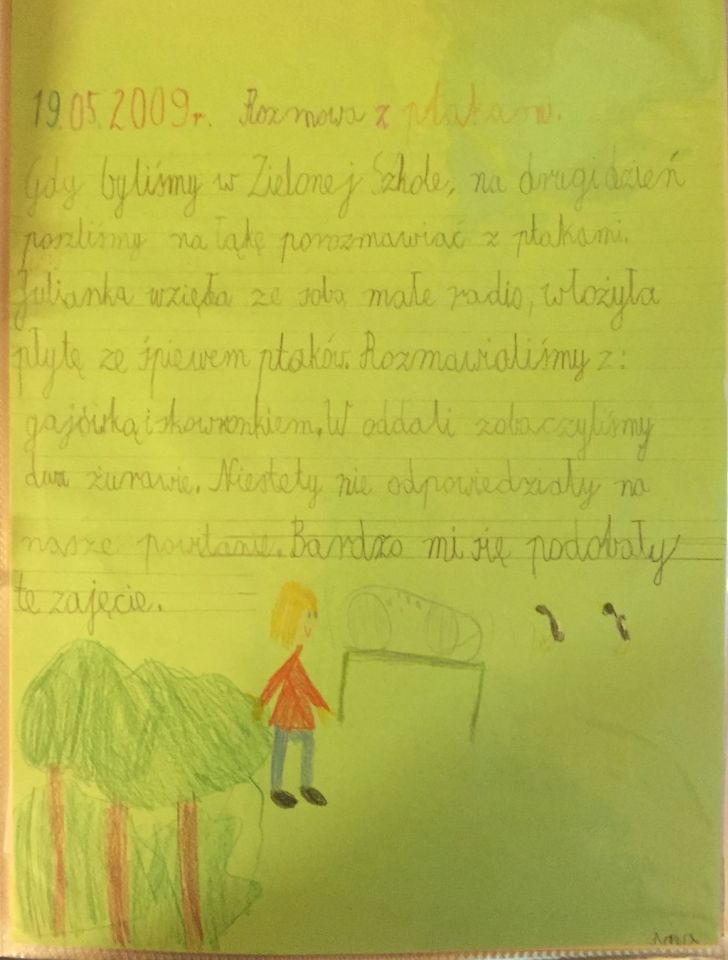 19.05.2009r. Rozmowa z ptakami.
Gdy byliśmy w Zielonej Szkole, na drugi dzień
poszliśmy na łąkę porozmawiać z ptakami.
Julianka wzięła ze sobą małe radio, włożyła
płytę ze śpiewem ptaków. Rozmawialiśmy z:
gajówką i skowronkiem. W oddali zobaczyliśmy
dwa żurawie. Niestety nie odpowiedziały na
nasze powitanie. Bardzo mi się podobały
te zajęcie.